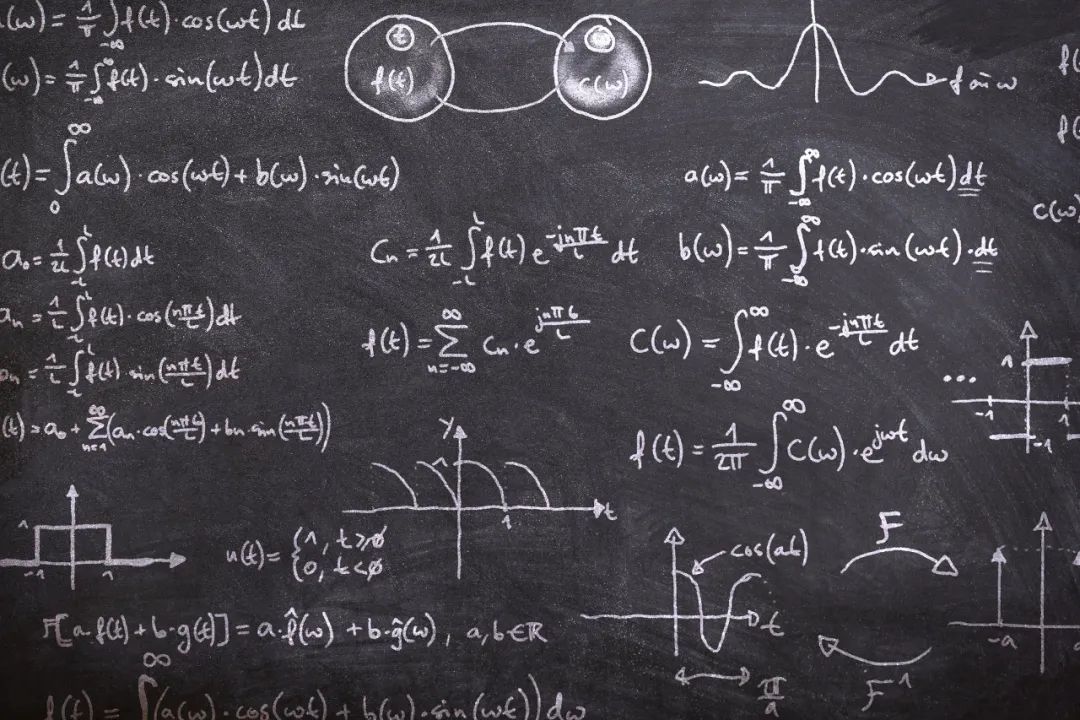 (ω) = 1/π ∫_{-∞} f(t)·cos(ωt) dt
(ω) = 1/π ∫_{-∞}^{∞} f(t)·sin(ωt) dt
t
f(t)
C(ω)
f
ω
f(
f(
(t) = ∫_0^∞ a(ω)·cos(ωt) + b(ω)·sin(ωt)
a(ω) = 1/π ∫_{-∞}^{∞} f(t)·cos(ωt) dt
C(ω)
b(ω) = 1/π ∫_{-∞}^{∞} f(t)·sin(ωt)·dt
a₀ = 1/2L ∫_{-L}^{L} f(t) dt
Cn = 1/2L ∫_{-L}^{L} f(t) e^{-jnπt/L} dt
an = 1/L ∫_{-L}^{L} f(t)·cos(nπt/L) dt
f(t) = Σ_{n=-∞}^{∞} Cn·e^{jnπt/L}
C(ω) = ∫_{-∞}^{∞} f(t)·e^{-jnπt/L} dt
bn = 1/L ∫_{-L}^{L} f(t)·sin(nπt/L) dt
... -1 1 1 -1
(t) = a₀ + Σ_{n=1}^{∞} (an·cos(nπt/L) + bn·sin(nπt/L))
f(t) = 1/2π ∫_{-∞}^{∞} C(ω)·e^{jωt} dω
y
1
1
t
1
-1
1
u(t) = {1, t≥0
{0, t<0
cos(at)
t
π/a
F
F⁻¹
-a
a
F[a·f(t) + b·g(t)] = a·f̂(ω) + b·ĝ(ω), a,b∈ℝ
f(t) = ∫^∞ (a(ω)·cos(ωt) + b(ω)·sin(ωt)) dω